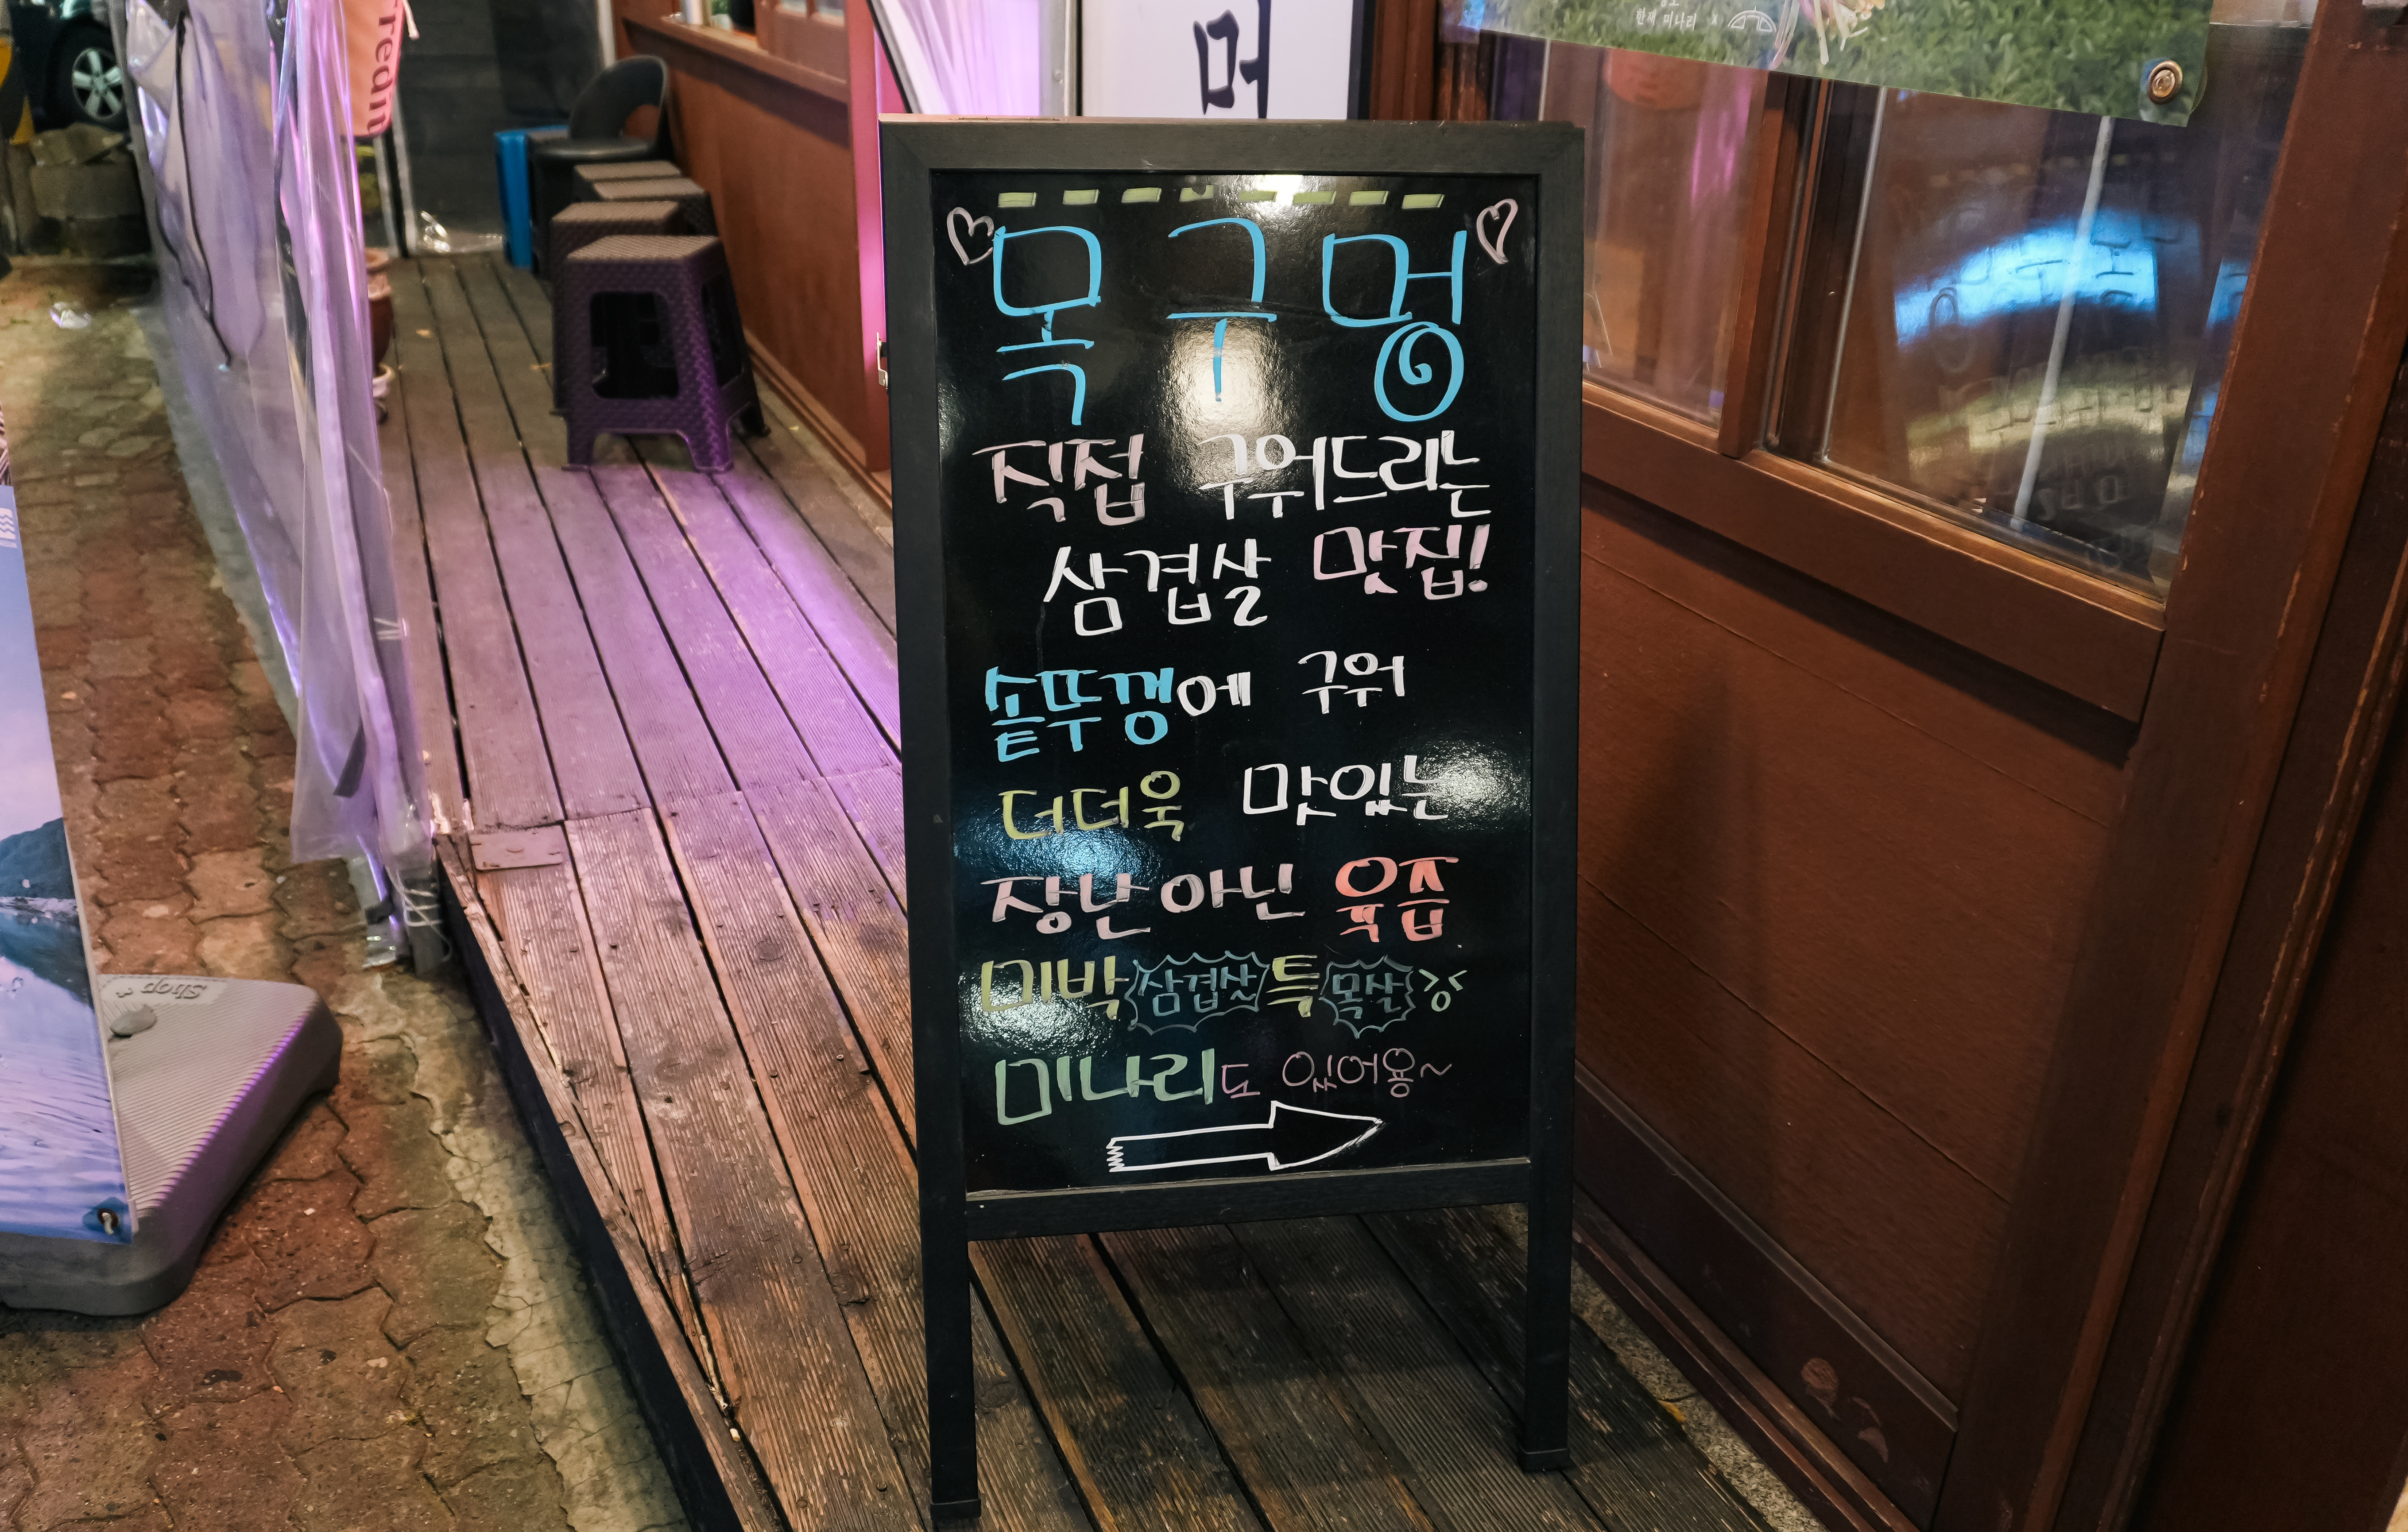 redan
머
한재 미나리 x
♡ 목구멍 ♡
직접 구워드리는
삼겹살 맛집!
솥뚜껑에 구워
더더욱 맛있는
장난아닌 육즙
미박 삼겹살 특 목살
미나리도 있어용~
Shop